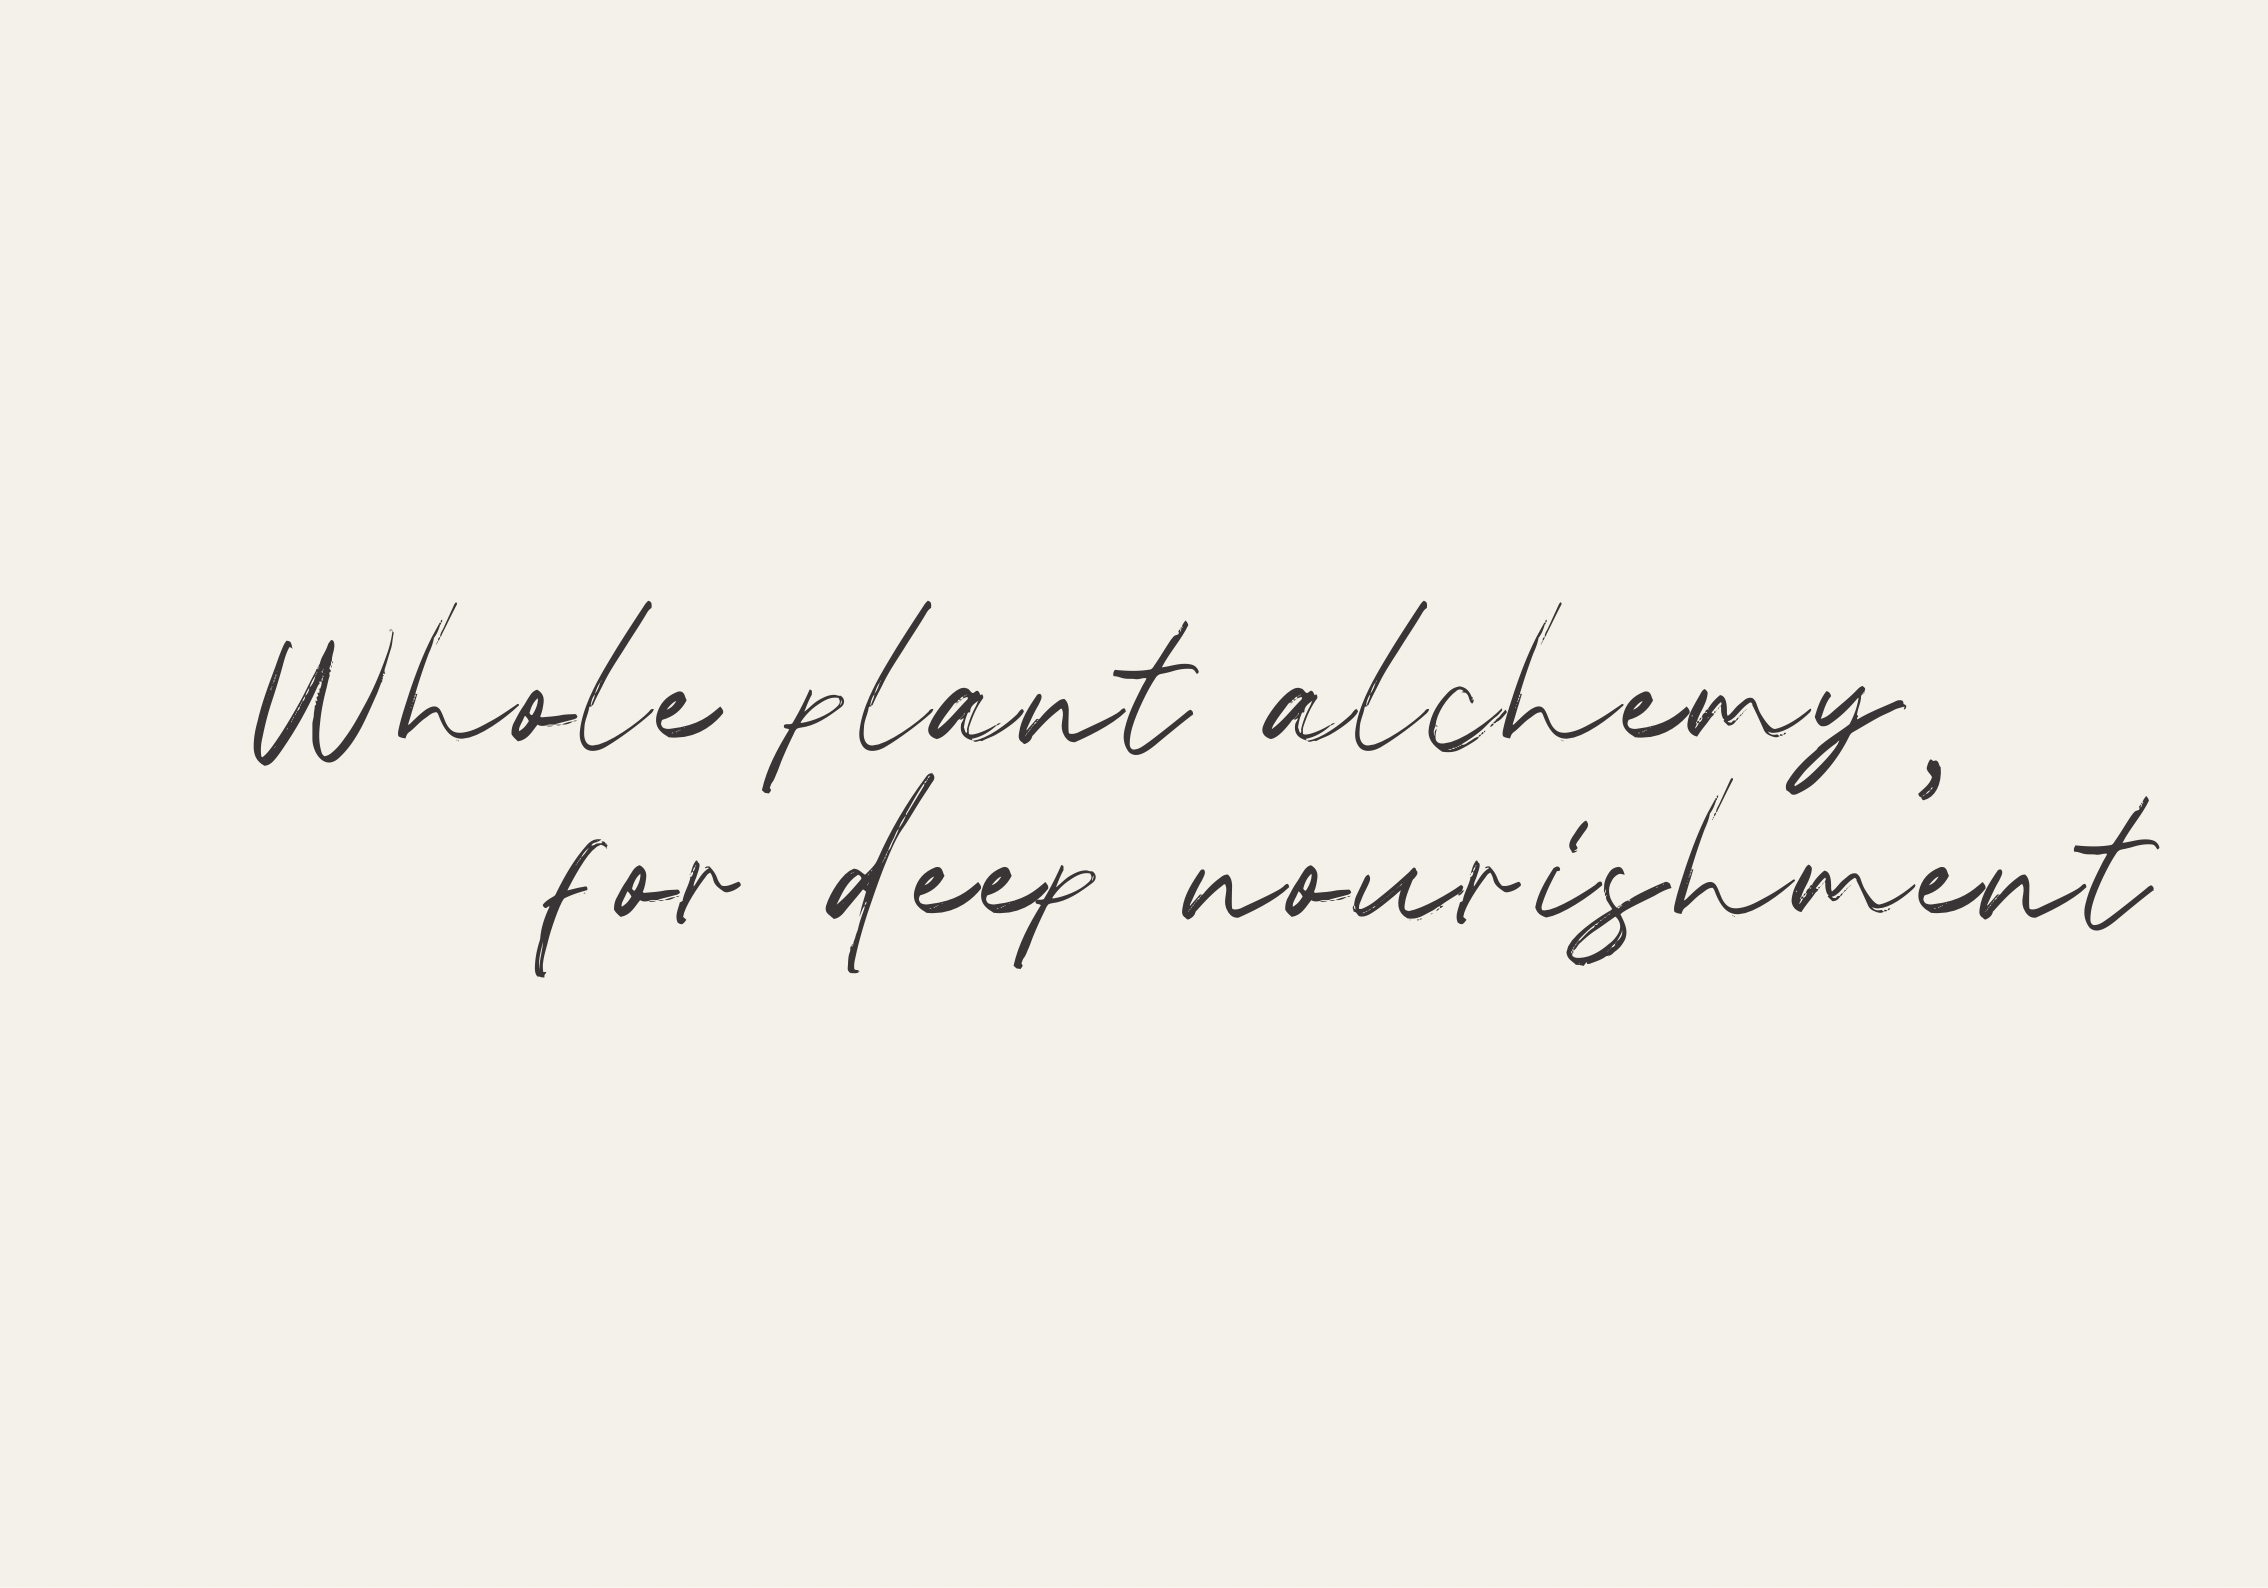 Whole plant alchemy,
for deep nourishment